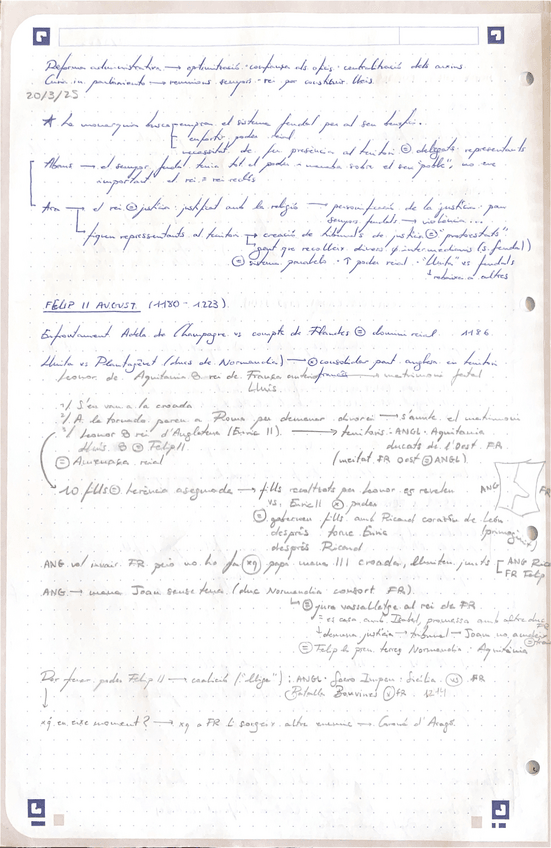 Reforma administrativa → optimització · confiança als oficis · centralització dels arxius
Crea un parlament → reunions sempre · rei per constituir lleis.
20/3/25
★ La monarquia busca emprar el sistema feudal per al seu benefici.
enfortir poder reial
necessitat de fer presència al territori = delegats · representants
Abans → el senyor feudal tenia tot el poder i manava sobre el seu "poble", no era
important el rei
Ara → el rei = justícia · justificat amb la religió → personificació de la justícia · pau
senyors feudals → violència...
figura representants al territori → creació de tribunals de justícia = "prebostats"
gent que recolleix diners ≠ intermediaris (s. feudal)
= sistema paral·lel · ↑ poder reial · "lluita" vs feudals
FELIP II AUGUST (1180 - 1223)
Enfrontament Adela de Champagne vs compte de Flandes = domini reial 1186
Lluita vs Plantagenet (ducs de Normandia) → consolidar part anglesa en territori
Leonor de Aquitania & rei de França → matrimoni fatal
Lluís.
1/ S'en van a la croada
2/ A la tornada paren a Roma per demanar divorci → s'anul·la el matrimoni
3/ Leonor & rei d'Anglaterra (Enric II). → territoris: ANGL · Aquitania
Lluís & Felip II ducats de l'Oest FR
= Amenaça reial (meitat FR Oest = ANGL)
10 fills = herència assegurada → fills recolzats per Leonor es revelen ANG FR
vs. Enric II poder
= governen fills amb Ricard corazón de León
després torne Enric (primogènit)
després Ricard
ANG vol invair FR però no ho fa xq papa mana III croada, lluiten junts ANG Ricard
FR Felip
ANG → mana Joan sense terra (duc Normandia consort FR).
= jura vassallatge al rei de FR
= es casa amb Isabel, promessa amb altre duc
↓ demana justícia → tribunal → Joan no
= Felip li pren terres Normandia · Aquitània
Per frenar poder Felip II → coalició ("lliga"): ANGL · Sacro Imperi · Sicília vs FR
Batalla Bouvines FR 1214
xq en eixe moment? → xq a FR li sorgeix altre enemic → Corona d'Aragó.